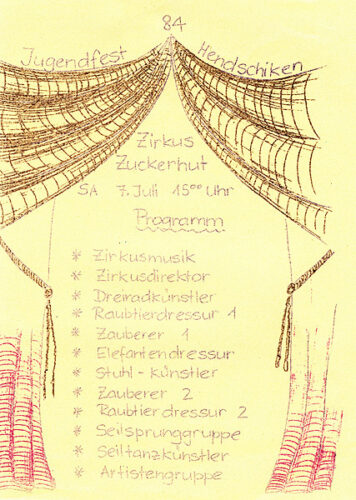 84
Jugendfest Hendschiken
Zirkus
Zuckerhut
SA 7. Juli 15⁰⁰ Uhr
Programm
* Zirkusmusik
* Zirkusdirektor
* Dreiradkünstler
* Raubtierdressur 1
* Zauberer 1
* Elefantendressur
* Stuhl-künstler
* Zauberer 2
* Raubtierdressur 2
* Seilsprunggruppe
* Seiltanzkünstler
* Artistengruppe